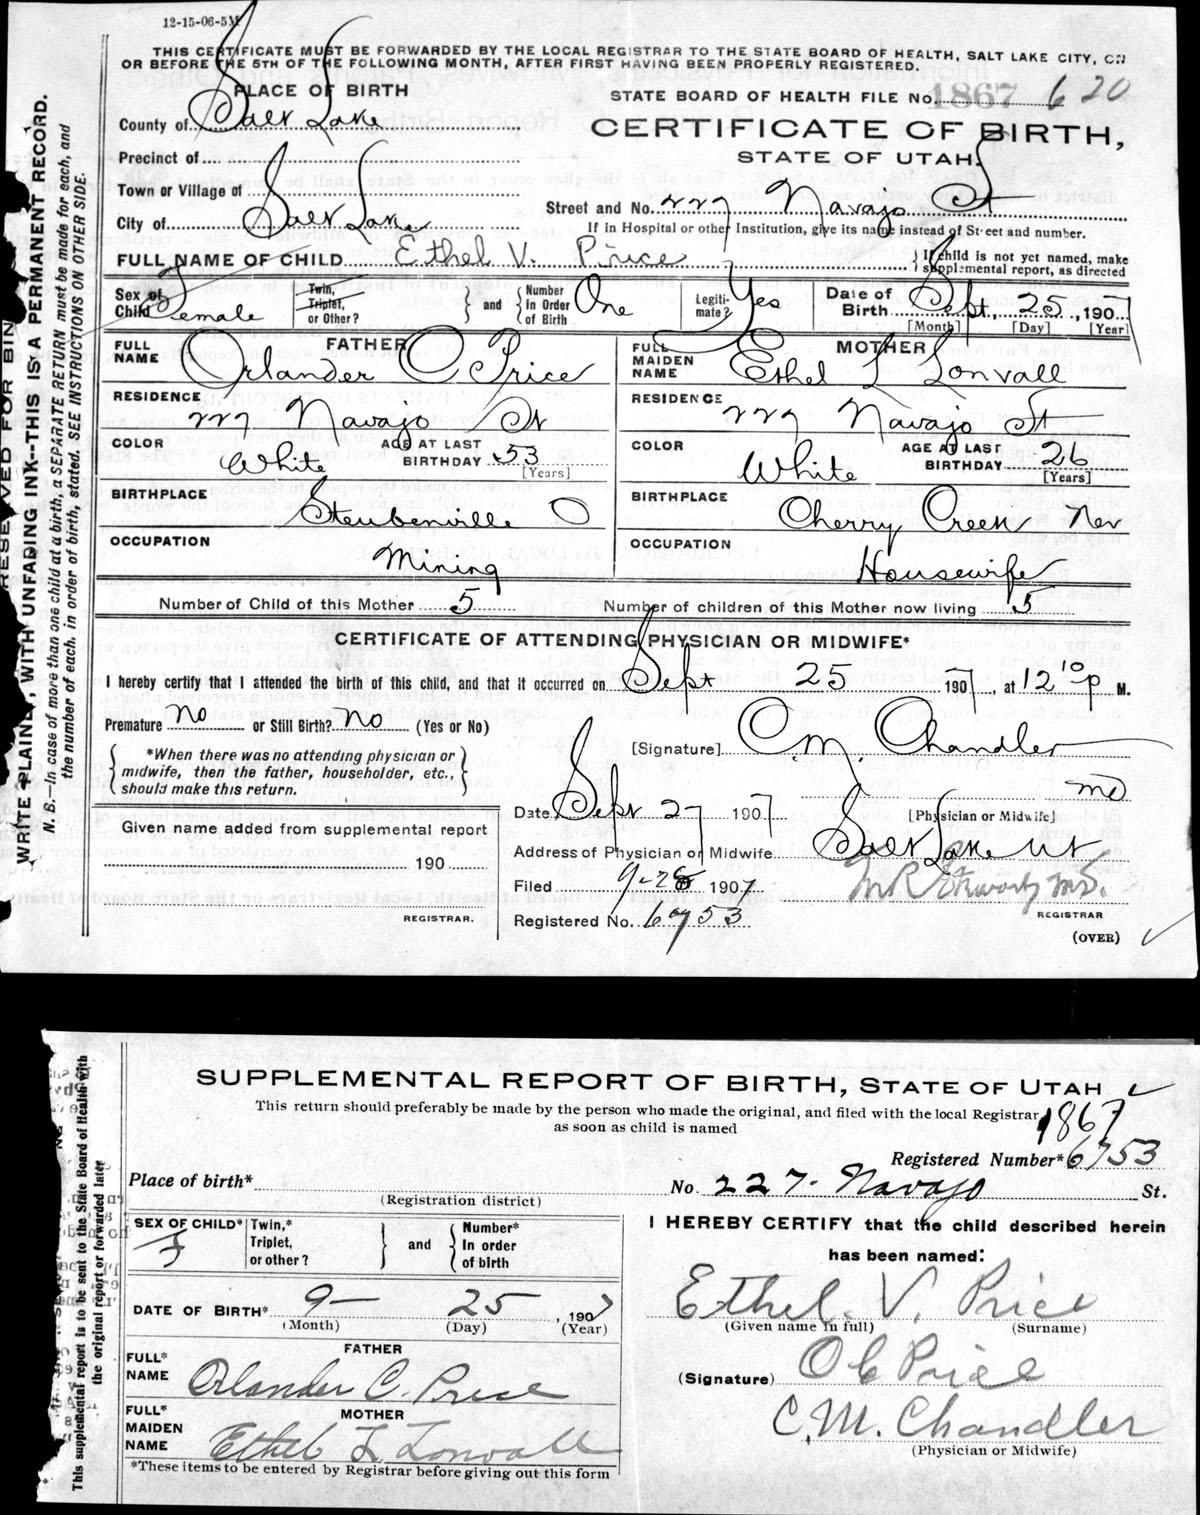 12-15-06-5M
THIS CERTIFICATE MUST BE FORWARDED BY THE LOCAL REGISTRAR TO THE STATE BOARD OF HEALTH, SALT LAKE CITY, ON
OR BEFORE THE 5TH OF THE FOLLOWING MONTH, AFTER FIRST HAVING BEEN PROPERLY REGISTERED.
PLACE OF BIRTH
STATE BOARD OF HEALTH FILE No. 1867 620
County of Salt Lake
CERTIFICATE OF BIRTH,
STATE OF UTAH.
Precinct of
Town or Village of
Street and No. 227 Navajo St
City of Salt Lake
If in Hospital or other Institution, give its name instead of Street and number.
FULL NAME OF CHILD Ethel V. Price
If child is not yet named, make
supplemental report, as directed
Sex of Child Female
Twin, Triplet, or Other?
and
Number in Order of Birth One
Legitimate? Yes
Date of Birth Sept, 25, 1907
[Month] [Day] [Year]
FATHER
FULL NAME Orlander C Price
MOTHER
FULL MAIDEN NAME Ethel L Lonvall
RESIDENCE 227 Navajo St
RESIDENCE 227 Navajo St
COLOR White AGE AT LAST BIRTHDAY 53 [Years]
COLOR White AGE AT LAST BIRTHDAY 26 [Years]
BIRTHPLACE Steubenville O
BIRTHPLACE Cherry Creek Nev
OCCUPATION Mining
OCCUPATION Housewife
Number of Child of this Mother 5
Number of children of this Mother now living 5
CERTIFICATE OF ATTENDING PHYSICIAN OR MIDWIFE*
I hereby certify that I attended the birth of this child, and that it occurred on Sept 25 1907, at 12 10 P M.
Premature No or Still Birth? No (Yes or No)
*When there was no attending physician or
midwife, then the father, householder, etc.,
should make this return.
[Signature] C. M. Chandler
MD
[Physician or Midwife]
Date Sept 27 1907
Given name added from supplemental report
190
REGISTRAR.
Address of Physician or Midwife Salt Lake Ut
Filed 9-28 1907
M R
REGISTRAR
Registered No. 6753
(OVER)
RESERVED FOR BIN
WRITE PLAINLY, WITH UNFADING INK--THIS IS A PERMANENT RECORD.
N. B.—In case of more than one child at a birth, a SEPARATE RETURN must be made for each, and
the number of each, in order of birth, stated. SEE INSTRUCTIONS ON OTHER SIDE.
SUPPLEMENTAL REPORT OF BIRTH, STATE OF UTAH
This return should preferably be made by the person who made the original, and filed with the local Registrar
as soon as child is named
1867
Registered Number* 6753
Place of birth*
(Registration district)
No. 227 - Navajo St.
SEX OF CHILD* F
Twin,* Triplet, or other?
and
Number* In order of birth
I HEREBY CERTIFY that the child described herein
has been named:
Ethel V. Price
(Given name in full) (Surname)
DATE OF BIRTH* 9- 25, 1907
(Month) (Day) (Year)
FATHER
FULL* NAME Orlander C. Price
(Signature) O C Price
MOTHER
FULL* MAIDEN NAME Ethel L. Lonvall
C. M. Chandler
(Physician or Midwife)
*These items to be entered by Registrar before giving out this form
This supplemental report is to be sent to the State Board of Health with
the original report or forwarded later